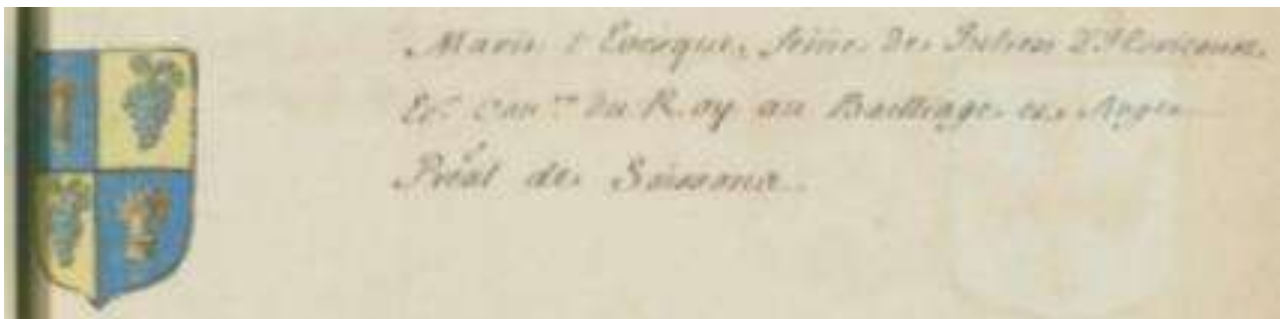 Marie l'Evesque, feme De Julien D'Hericourt,
Ec.r Con.er du Roy au Bailliage et Siege
de Soissons.